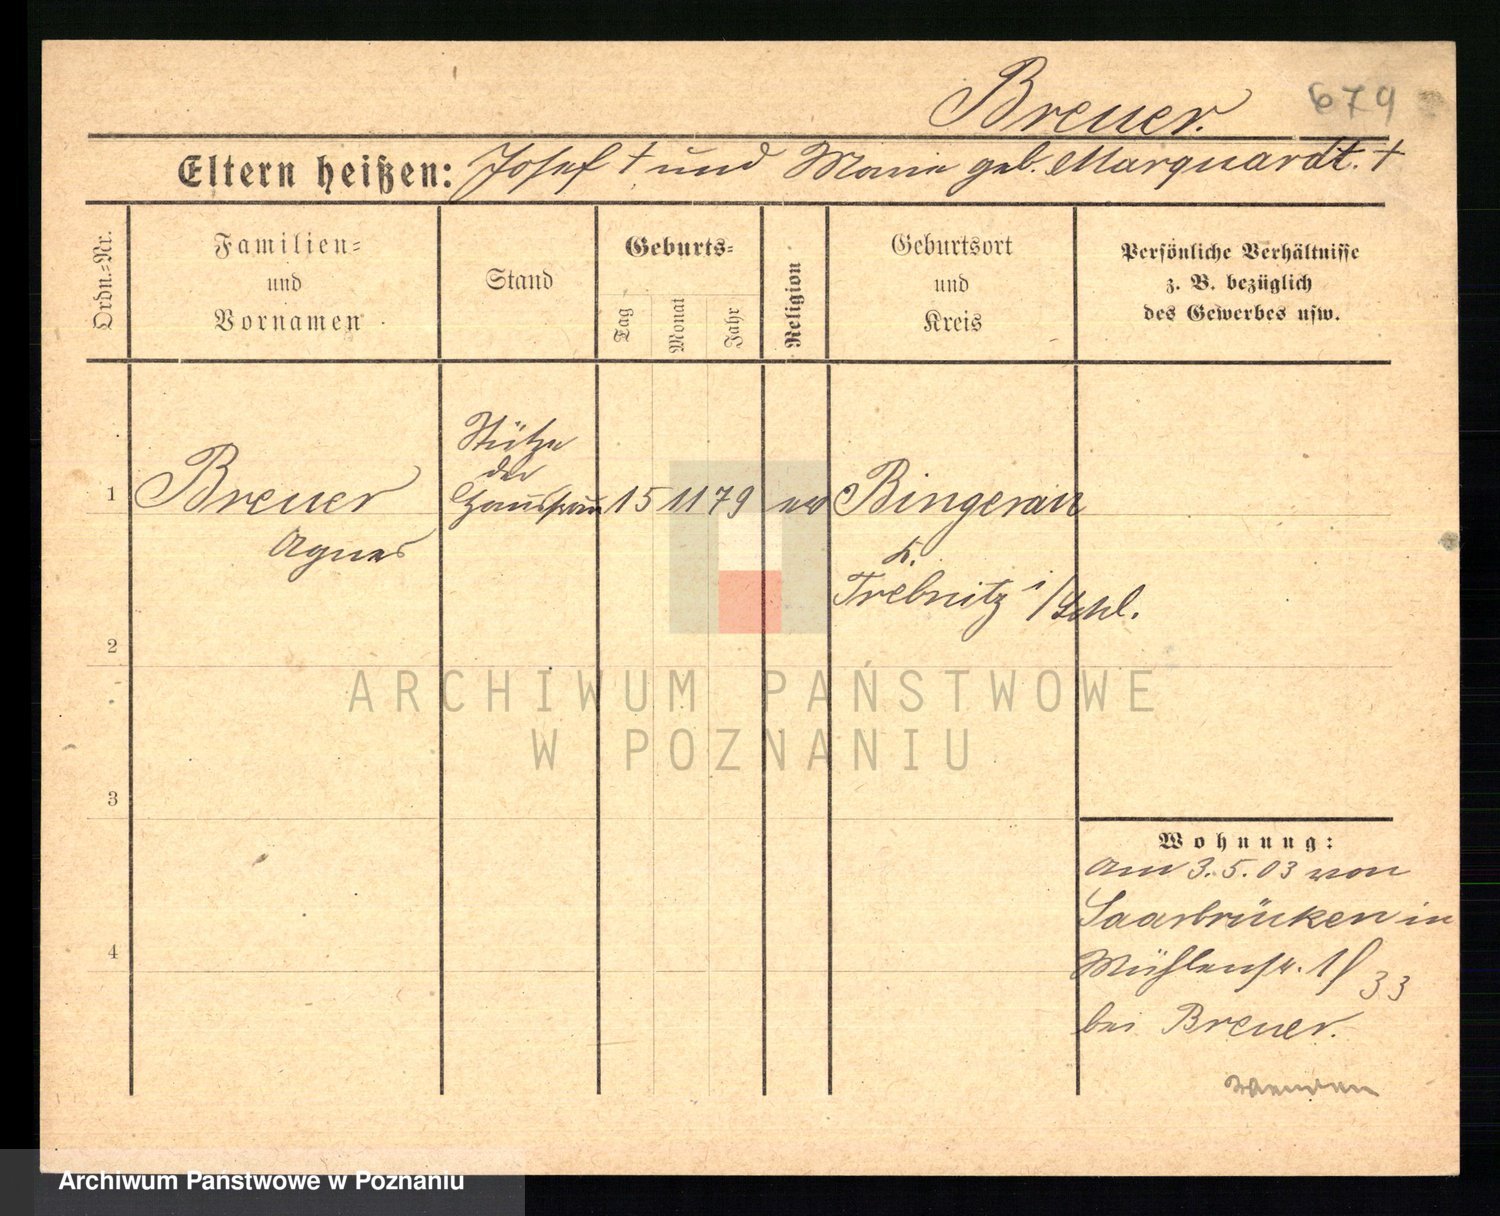 Breuer.
679
Eltern heißen: Josef † und Marie geb. Marquardt. †
Ordn.-Nr.
Familien-
und
Vornamen
Stand
Geburts-
Tag
Monat
Jahr
Religion
Geburtsort
und
Kreis
Persönliche Verhältnisse
z. B. bezüglich
des Gewerbes usw.
1
Breuer
Agnes
Stütze
der
Hausfrau
15 11 79
ev
Bingerau
K.
Trebnitz i/Schl.
2
3
4
Wohnung:
Am 3.5.03 von
Saarbrücken in
Mühlenstr. 1/33
bei Breuer.
Wenden
ARCHIWUM PAŃSTWOWE
W POZNANIU
Archiwum Państwowe w Poznaniu